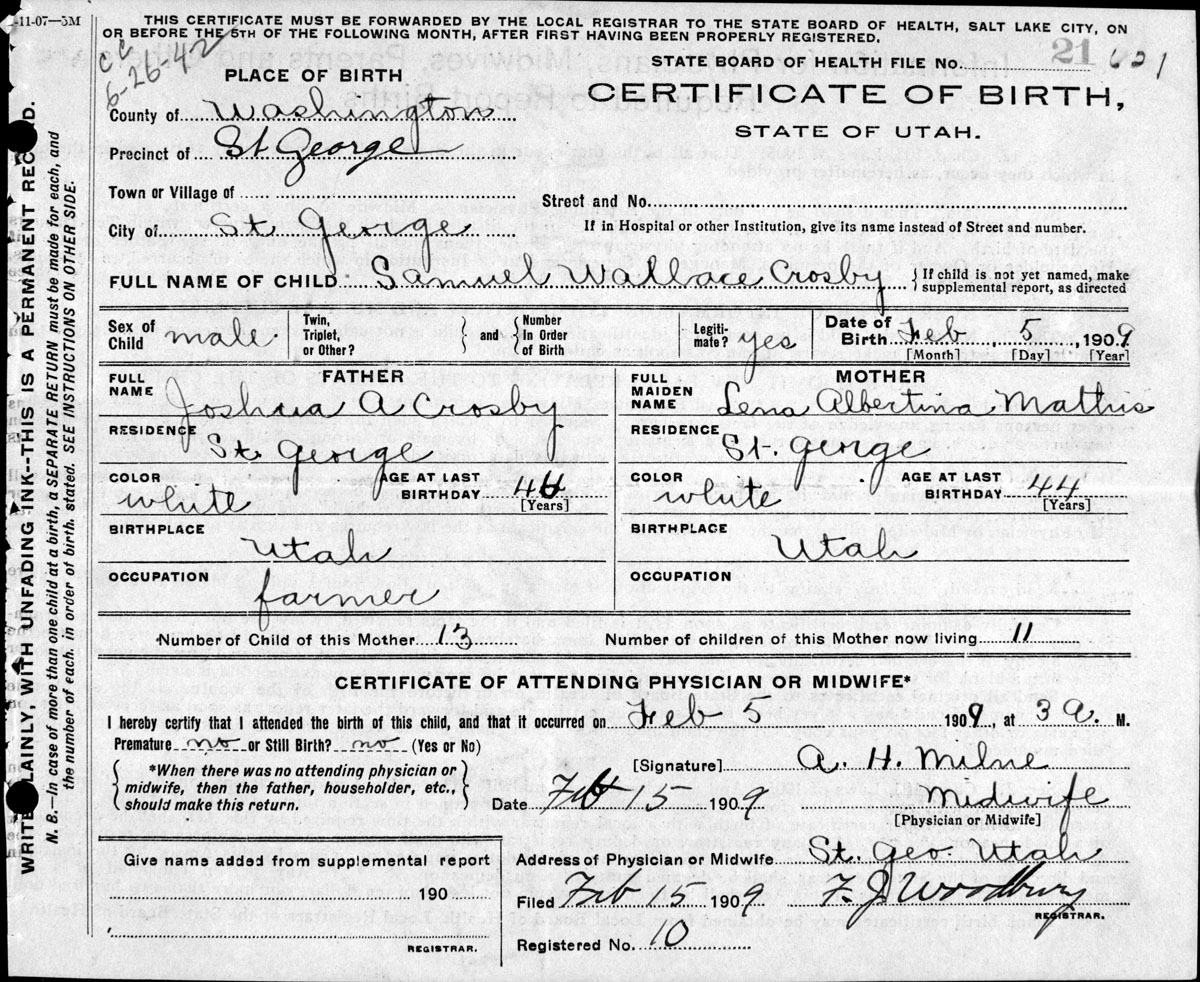 -11-07—5M
THIS CERTIFICATE MUST BE FORWARDED BY THE LOCAL REGISTRAR TO THE STATE BOARD OF HEALTH, SALT LAKE CITY, ON
OR BEFORE THE 5TH OF THE FOLLOWING MONTH, AFTER FIRST HAVING BEEN PROPERLY REGISTERED.
CC
6-26-42
STATE BOARD OF HEALTH FILE NO. 21 621
PLACE OF BIRTH
CERTIFICATE OF BIRTH,
STATE OF UTAH.
County of Washington
Precinct of St George
Town or Village of
Street and No.
City of St. George
If in Hospital or other Institution, give its name instead of Street and number.
FULL NAME OF CHILD Samuel Wallace Crosby { If child is not yet named, make
supplemental report, as directed
Sex of Child male
Twin, Triplet, or Other? } and { Number In Order of Birth
Legiti-mate? yes
Date of Birth Feb 5, 1909
[Month] [Day] [Year]
FATHER
FULL NAME Joshua A Crosby
RESIDENCE St. George
COLOR white
AGE AT LAST BIRTHDAY 46
[Years]
BIRTHPLACE
Utah
OCCUPATION
farmer
MOTHER
FULL MAIDEN NAME Lena Albertina Mathis
RESIDENCE St. george
COLOR white
AGE AT LAST BIRTHDAY 44
[Years]
BIRTHPLACE
Utah
OCCUPATION
Number of Child of this Mother 13 Number of children of this Mother now living 11
CERTIFICATE OF ATTENDING PHYSICIAN OR MIDWIFE*
I hereby certify that I attended the birth of this child, and that it occurred on Feb 5 1909, at 3 a. M.
Premature no or Still Birth? no (Yes or No)
{ *When there was no attending physician or
midwife, then the father, householder, etc.,
should make this return. }
[Signature] A. H. Milne
Date Feb 15 1909 Midwife
[Physician or Midwife]
Give name added from supplemental report
190
REGISTRAR.
Address of Physician or Midwife St. Geo. Utah
Filed Feb 15 1909 F. J. Woodbury
REGISTRAR.
Registered No. 10
WRITE PLAINLY, WITH UNFADING INK--THIS IS A PERMANENT RECORD.
N. B.—In case of more than one child at a birth, a SEPARATE RETURN must be made for each, and
the number of each, in order of birth, stated. SEE INSTRUCTIONS ON OTHER SIDE.